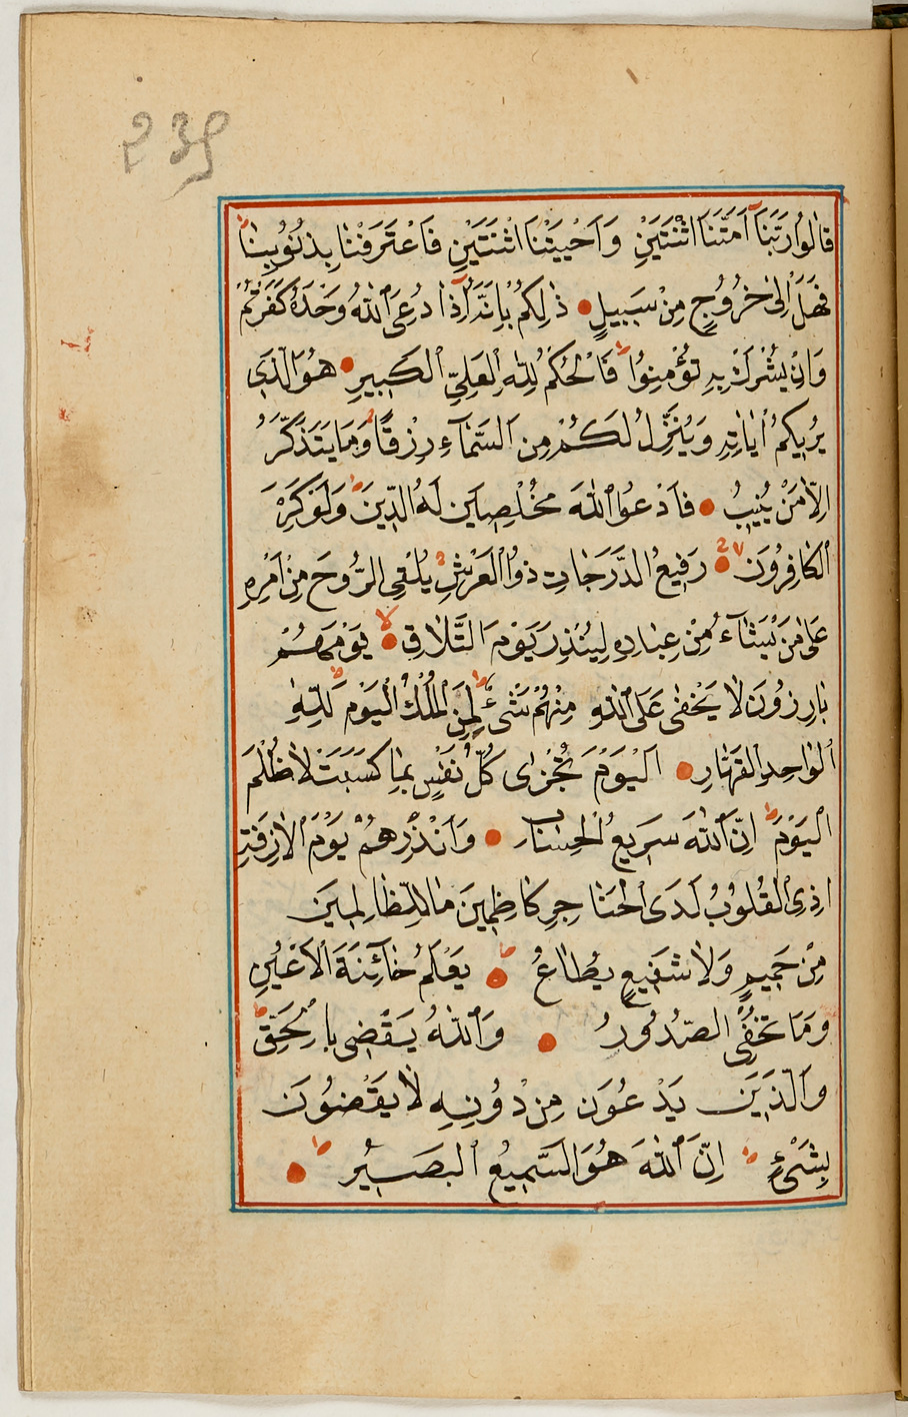 239
قَالُوا رَبَّنَا اَمَتَّنَا اثْنَتَيْنِ وَاَحْيَيْتَنَا اثْنَتَيْنِ فَاعْتَرَفْنَا بِذُنُوبِنَا
فَهَلْ اِلٰى خُرُوجٍ مِنْ سَبِيلٍ ذٰلِكُمْ بِاَنَّهُ اِذَا دُعِيَ اللّٰهُ وَحْدَهُ كَفَرْتُمْ
وَاِنْ يُشْرَكْ بِهِ تُؤْمِنُوا فَالْحُكْمُ لِلّٰهِ الْعَلِيِّ الْكَبِيرِ هُوَ الَّذِي
يُرِيكُمْ اٰيَاتِهِ وَيُنَزِّلُ لَكُمْ مِنَ السَّمَاءِ رِزْقًا وَمَا يَتَذَكَّرُ
اِلَّا مَنْ يُنِيبُ فَادْعُوا اللّٰهَ مُخْلِصِينَ لَهُ الدِّينَ وَلَوْ كَرِهَ
الْكَافِرُونَ رَفِيعُ الدَّرَجَاتِ ذُو الْعَرْشِ يُلْقِي الرُّوحَ مِنْ اَمْرِهِ
عَلٰى مَنْ يَشَاءُ مِنْ عِبَادِهِ لِيُنْذِرَ يَوْمَ التَّلَاقِ يَوْمَ هُمْ
بَارِزُونَ لَا يَخْفٰى عَلَى اللّٰهِ مِنْهُمْ شَيْءٌ لِمَنِ الْمُلْكُ الْيَوْمَ لِلّٰهِ
الْوَاحِدِ الْقَهَّارِ اَلْيَوْمَ تُجْزٰى كُلُّ نَفْسٍ بِمَا كَسَبَتْ لَا ظُلْمَ
الْيَوْمَ اِنَّ اللّٰهَ سَرِيعُ الْحِسَابِ وَاَنْذِرْهُمْ يَوْمَ الْاٰزِفَةِ
اِذِ الْقُلُوبُ لَدَى الْحَنَاجِرِ كَاظِمِينَ مَا لِلظَّالِمِينَ
مِنْ حَمِيمٍ وَلَا شَفِيعٍ يُطَاعُ يَعْلَمُ خَائِنَةَ الْاَعْيُنِ
وَمَا تُخْفِي الصُّدُورُ وَاللّٰهُ يَقْضِي بِالْحَقِّ
وَالَّذِينَ يَدْعُونَ مِنْ دُونِهِ لَا يَقْضُونَ
بِشَيْءٍ اِنَّ اللّٰهَ هُوَ السَّمِيعُ الْبَصِيرُ